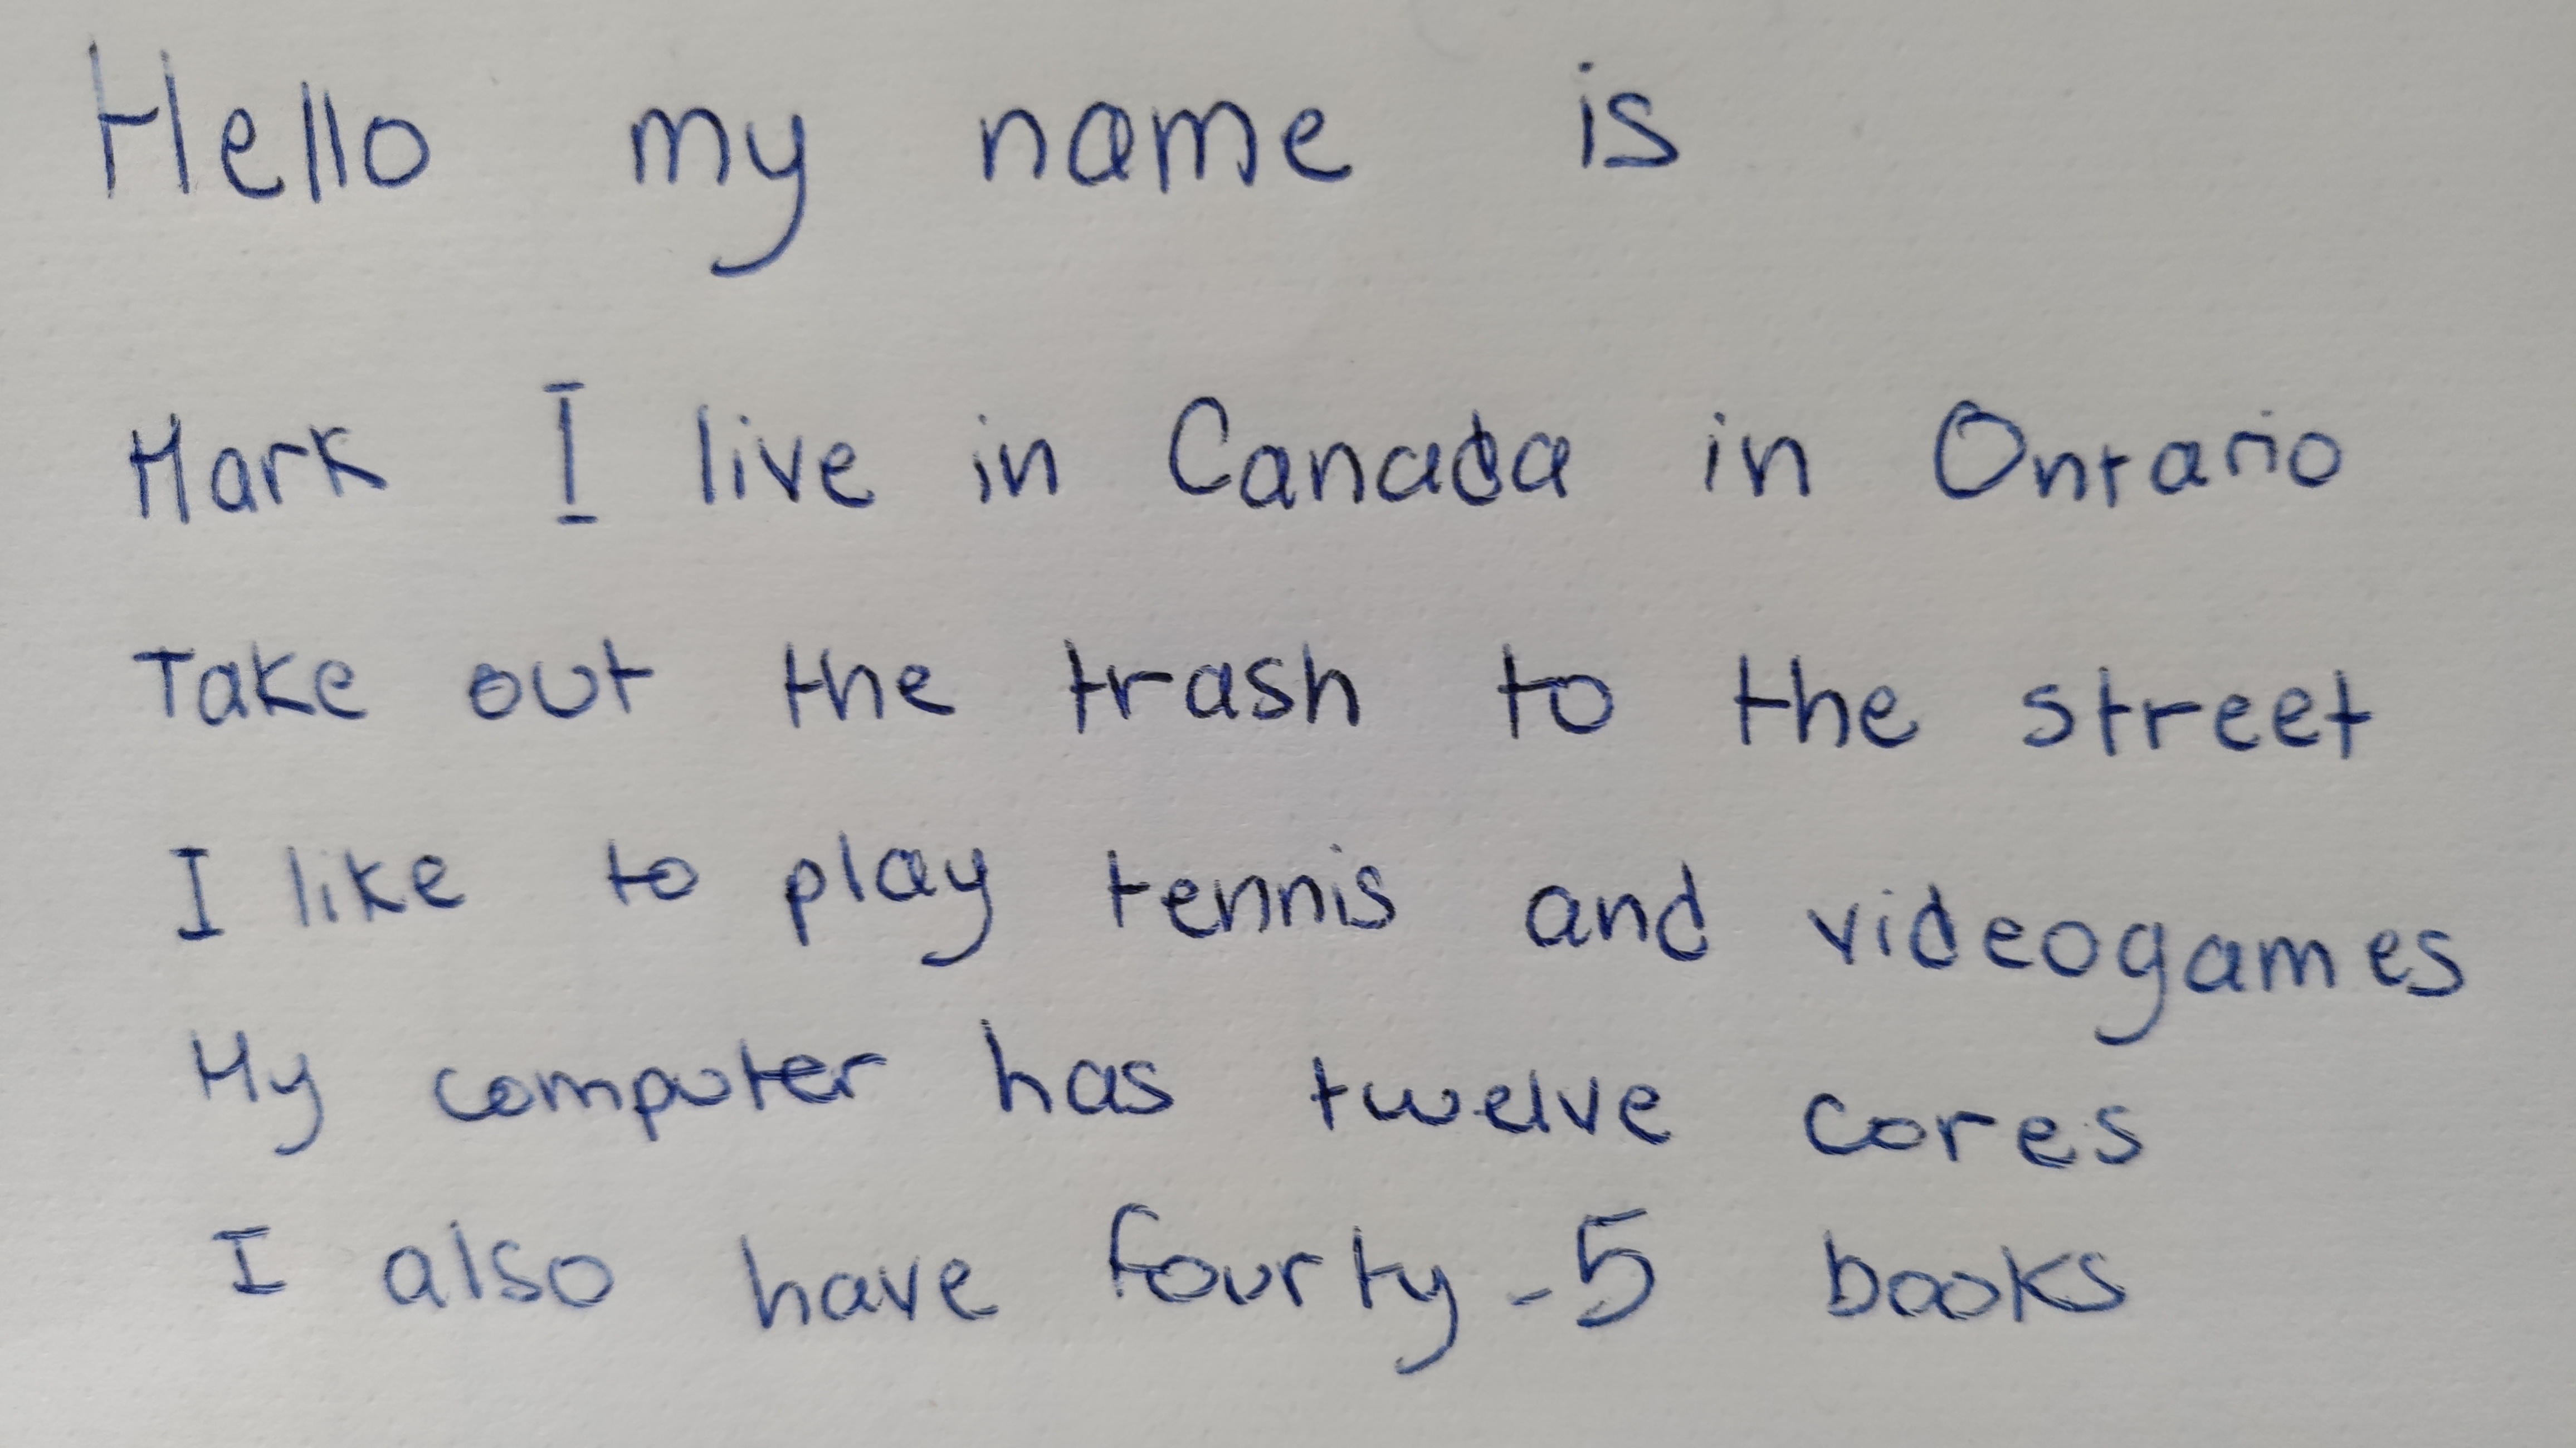 Hello my name is
Mark I live in Canada in Ontario
Take out the trash to the street
I like to play tennis and videogames
My computer has twelve cores
I also have fourty-5 books